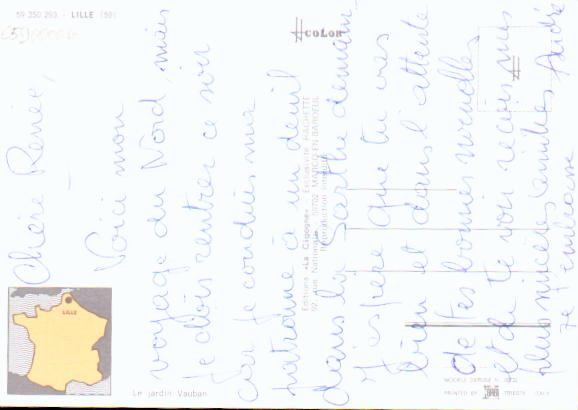 59 350 293 - LILLE (59)
COLOR
Chère Renée,
Voici mon
voyage du Nord, mais
je dois rentrer ce soir
car je conduis ma
patronne à un deuil
dans la Sarthe demain.
J'espère que tu vas
bien et dans l'attente
de tes bonnes nouvelles
et de te voir reçois mes
plus sincères amitiés André
je t'embrasse
LILLE
Le jardin Vauban
Editions «La Cigogne» - Exclusivité HACHETTE
92, rue Nationale, 59702 MARCQ-EN-BAROEUL
Reproduction interdite
MODÈLE DÉPOSÉ
PRINTED BY
TRIESTE ITALY